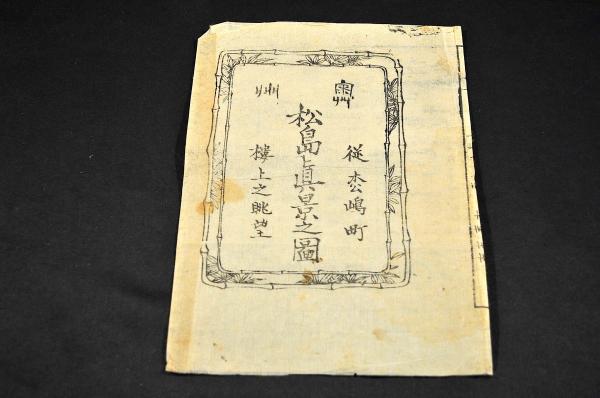 奥州
従枩嶋町
松島眞景之圖
樓上之眺望